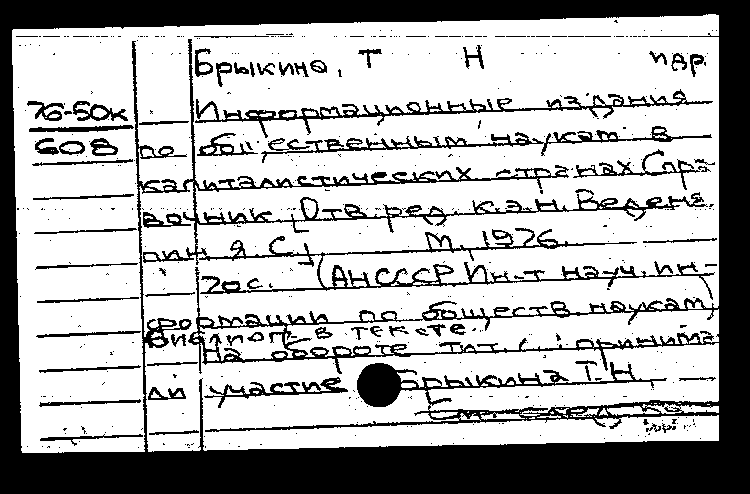 Брыкина, Т Н и др.
76-50к Информационные издания
608 по общественным наукам в
капиталистических странах Спра-
вочник [Отв. ред. к.э.н. Веденя-
пин Я.С.], М., 1976.
70с. (АНСССР Ин-т науч. ин-
формации по обществ. наукам)
Библиогр. в тексте.
На обороте тит. л.: принима-
ли участие Брыкина Т.Н.
См. след. ка